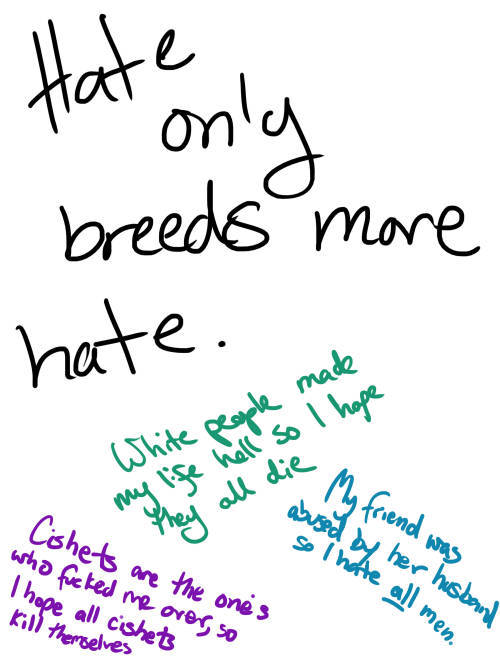 Hate
only
breeds more
hate.
White people made
my life hell so I hope
they all die
My friend was
abused by her husband
so I hate all men.
Cishets are the one's
who fucked me over, so
I hope all cishets
kill themselves